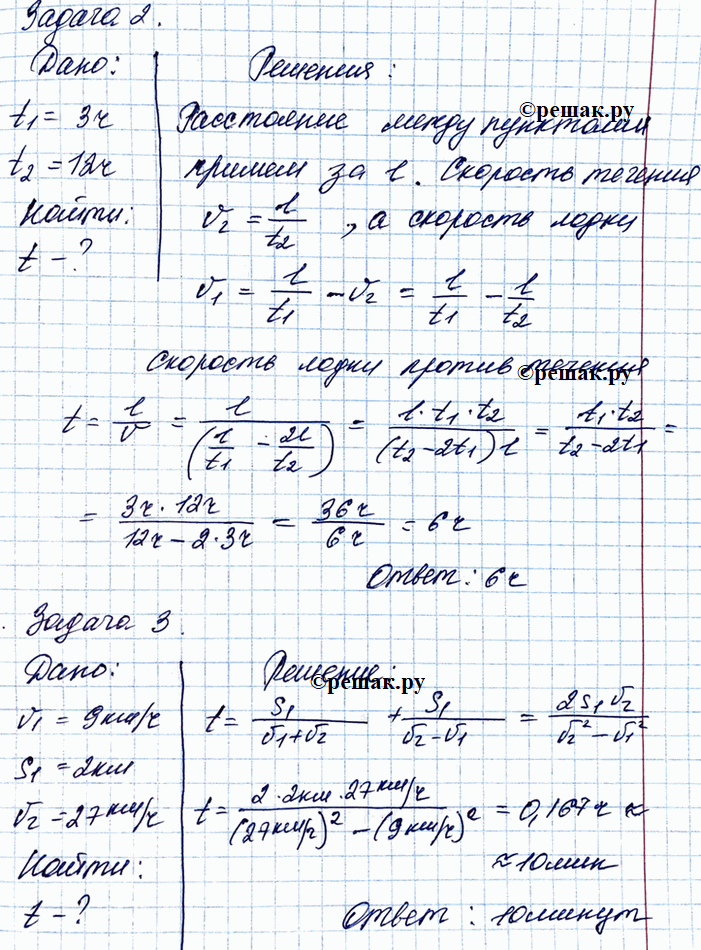 Задача 2.
Дано:
t₁ = 3ч
t₂ = 12ч
Найти:
t – ?
Решения:
©решак.ру
Расстояние между пунктами
примем за l. Скорость течения
v₂ = l/t₂, а скорость лодки
v₁ = l/t₁ – v₂ = l/t₁ – l/t₂
Скорость лодки против течения
©решак.ру
t = l/v = l/(l/t₁ – 2l/t₂) = l·t₁·t₂/(t₂–2t₁)l = t₁·t₂/t₂–2t₁ =
= 3ч·12ч/12ч–2·3ч = 36ч/6ч = 6ч
Ответ: 6ч
Задача 3.
Дано:
v₁ = 9км/ч
s₁ = 2км
v₂ = 27км/ч
Найти:
t – ?
Решение:
©решак.ру
t = s₁/v₁+v₂ + s₁/v₂–v₁ = 2s₁v₂/v₂²–v₁²
t = 2·2км·27км/ч/(27км/ч)² – (9км/ч)² = 0,167ч ≈
≈ 10мин
Ответ: 10минут